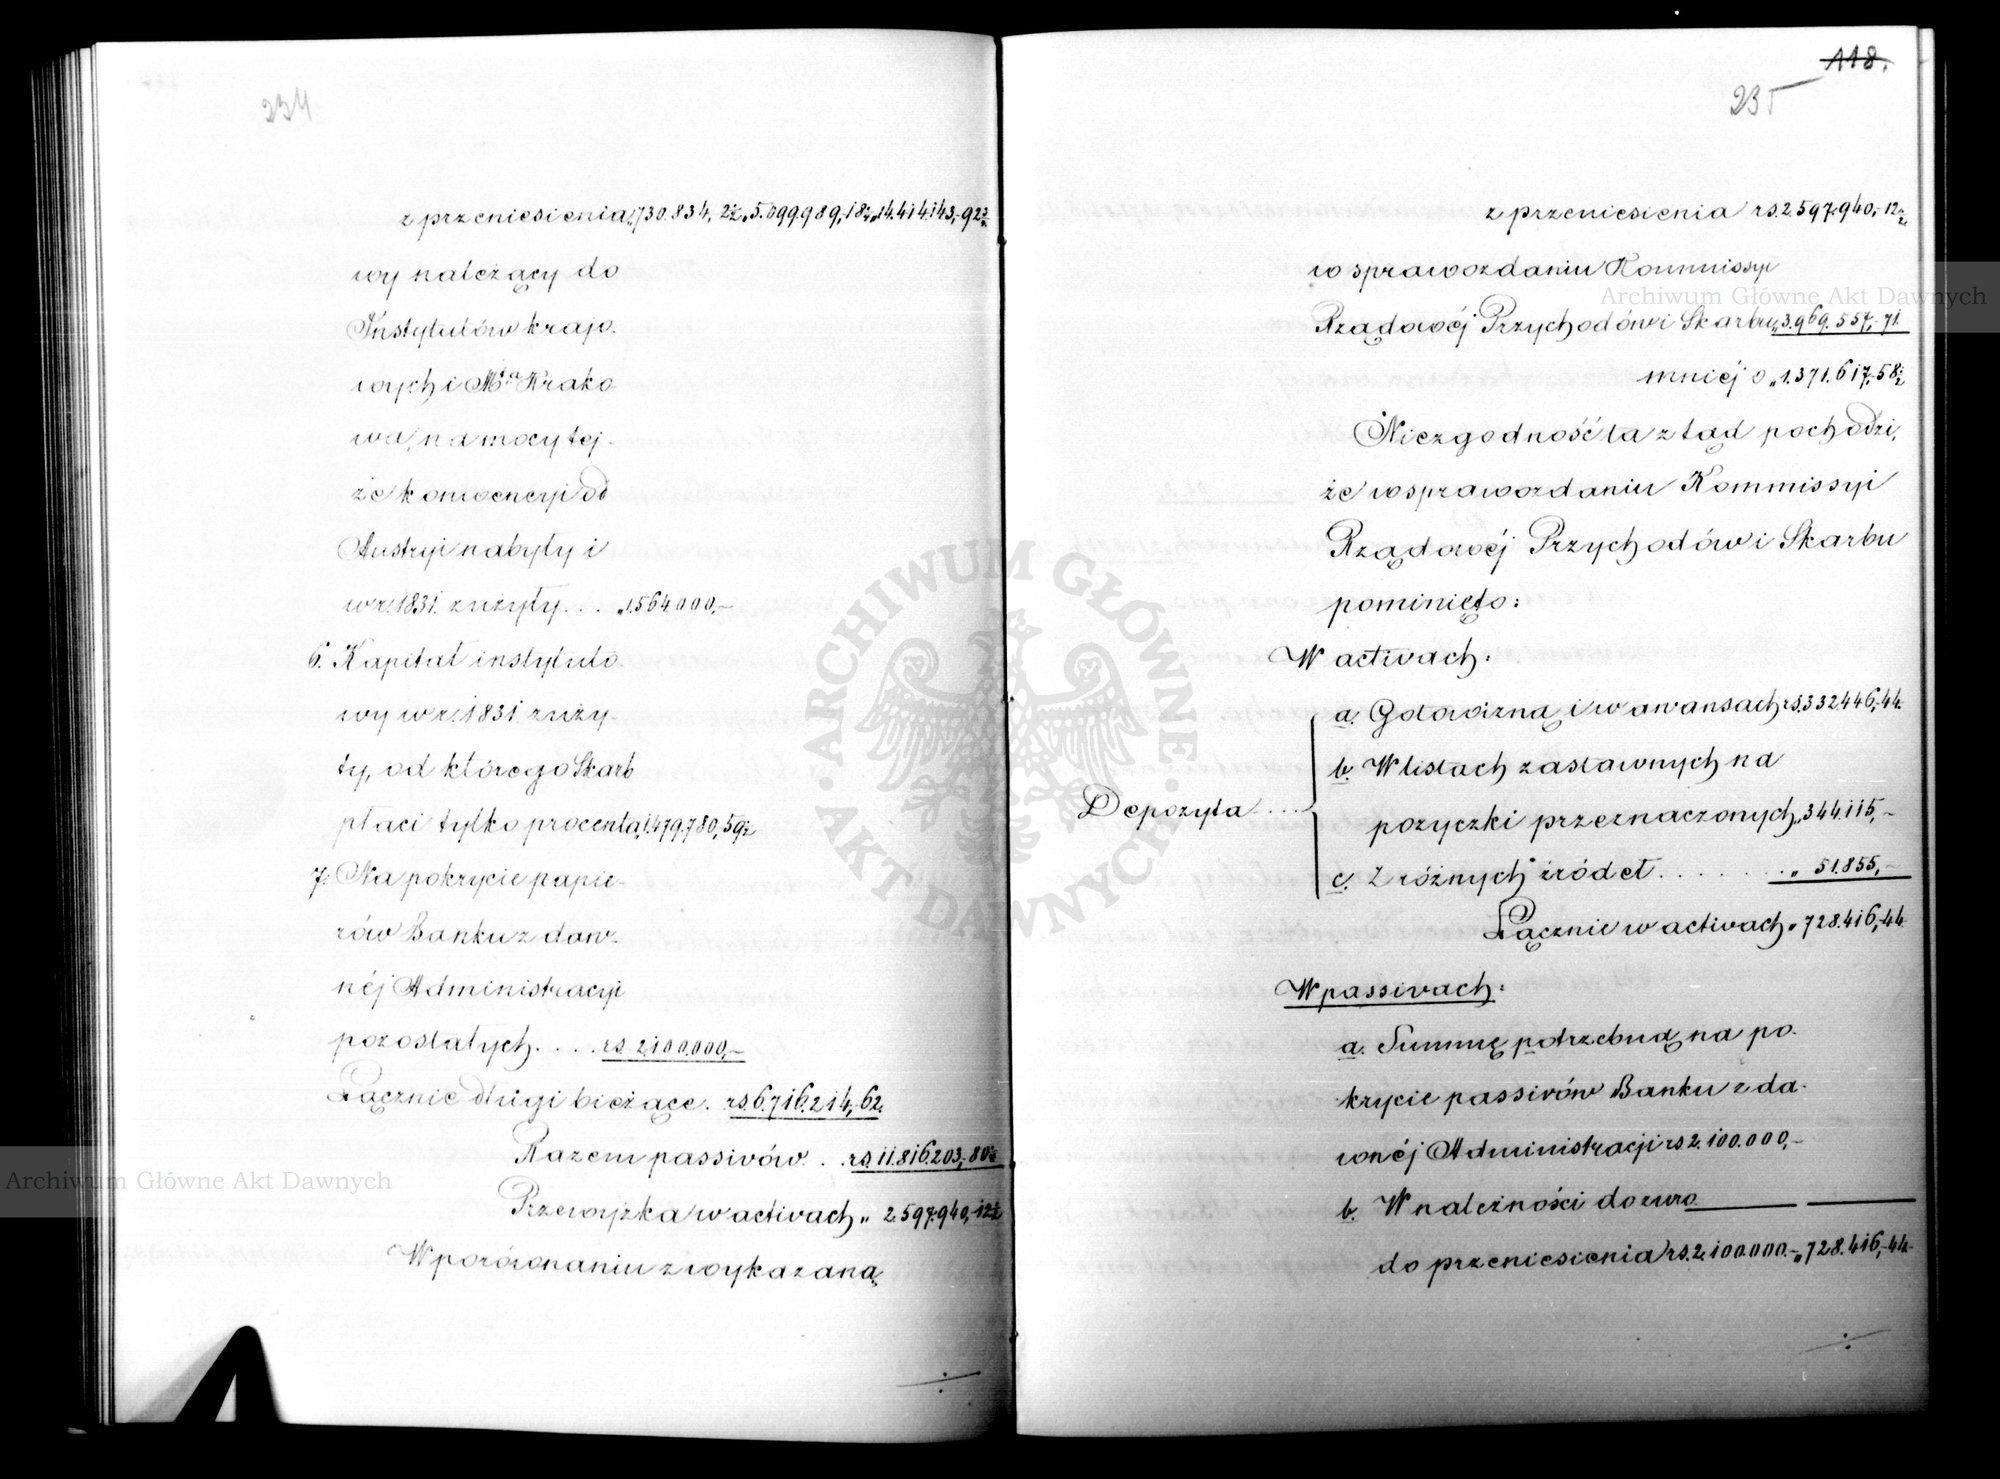 234
z przeniesienia „730.834,-2½ „5.099.989,-18½ „14.414.143,-92½
wy należący do
Instytutów krajo-
wych i Mta Krako
wa, na mocy tej-
że konwencyi od
Austryi nabyty i
w r. 1831 zużyty . . . „1.564.000,-
6. Kapitał instytuto
wy w r. 1831. zuży-
ty, od którego Skarb
płaci tylko procenta „1.479.780,59½
7. Na pokrycie papie-
rów Banku z daw-
néj Administracyi
pozostałych . . . . rs. 2.100.000,-
Łącznie długi bieżące. rs. 6.716.214,-62.
Razem passivów . . rs. 11.816.203,-80½
Przewyżka w activach „ 2.597.940,-12½
W porównaniu z wykazaną
118.
235
z przeniesienia rs. 2.597.940,-12½
w sprawozdaniu Kommissyi
Rządowéj Przychodów i Skarbu „3.969.557,-71.
mniéj o „1.371.617,-58½
Niezgodność ta ztąd pochodzi,
że w sprawozdaniu Kommissyi
Rządowéj Przychodów i Skarbu
pominięto:
W activach:
Depozyta . . . .
a. Gotowizną i w awansach rs. 332.446,-44.
b. W listach zastawnych na
pożyczki przeznaczonych „344.115,-
c. Z różnych źródeł . . . . . . . „ 51.855,-
Łącznie w activach „728.416,-44.
W passivach:
a. Summę potrzebną na po-
krycie passivów Banku z da-
wnéj Administracji rs. 2.100.000,-
b. W należności dozuro
do przeniesienia rs. 2.100.000.- „728.416,-44.
Archiwum Główne Akt Dawnych
Archiwum Główne Akt Dawnych
ARCHIWUM GŁÓWNE
AKT DAWNYCH